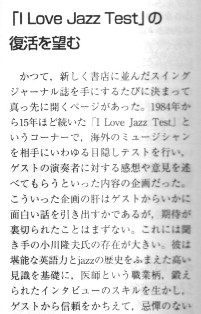 「I Love Jazz Test」の
復活を望む
かつて、新しく書店に並んだスイング
ジャーナル誌を手にするたびに決まって
真っ先に開くページがあった。1984年か
ら15年ほど続いた「I Love Jazz Test」と
いうコーナーで、海外のミュージシャン
を相手にいわゆる目隠しテストを行い、
ゲストの演奏者に対する感想や意見を述
べてもらうといった内容の企画だった。
こういった企画の肝はゲストからいかに
面白い話を引き出すかであるが、期待が
裏切られたことはまずない。これには聞
き手の小川隆夫氏の存在が大きい。彼は
堪能な英語力とjazzの歴史をふまえた高い
見識を基礎に、医師という職業柄、鍛え
られたインタビューのスキルを生かし、
ゲストから信頼をかちえて、忌憚のない